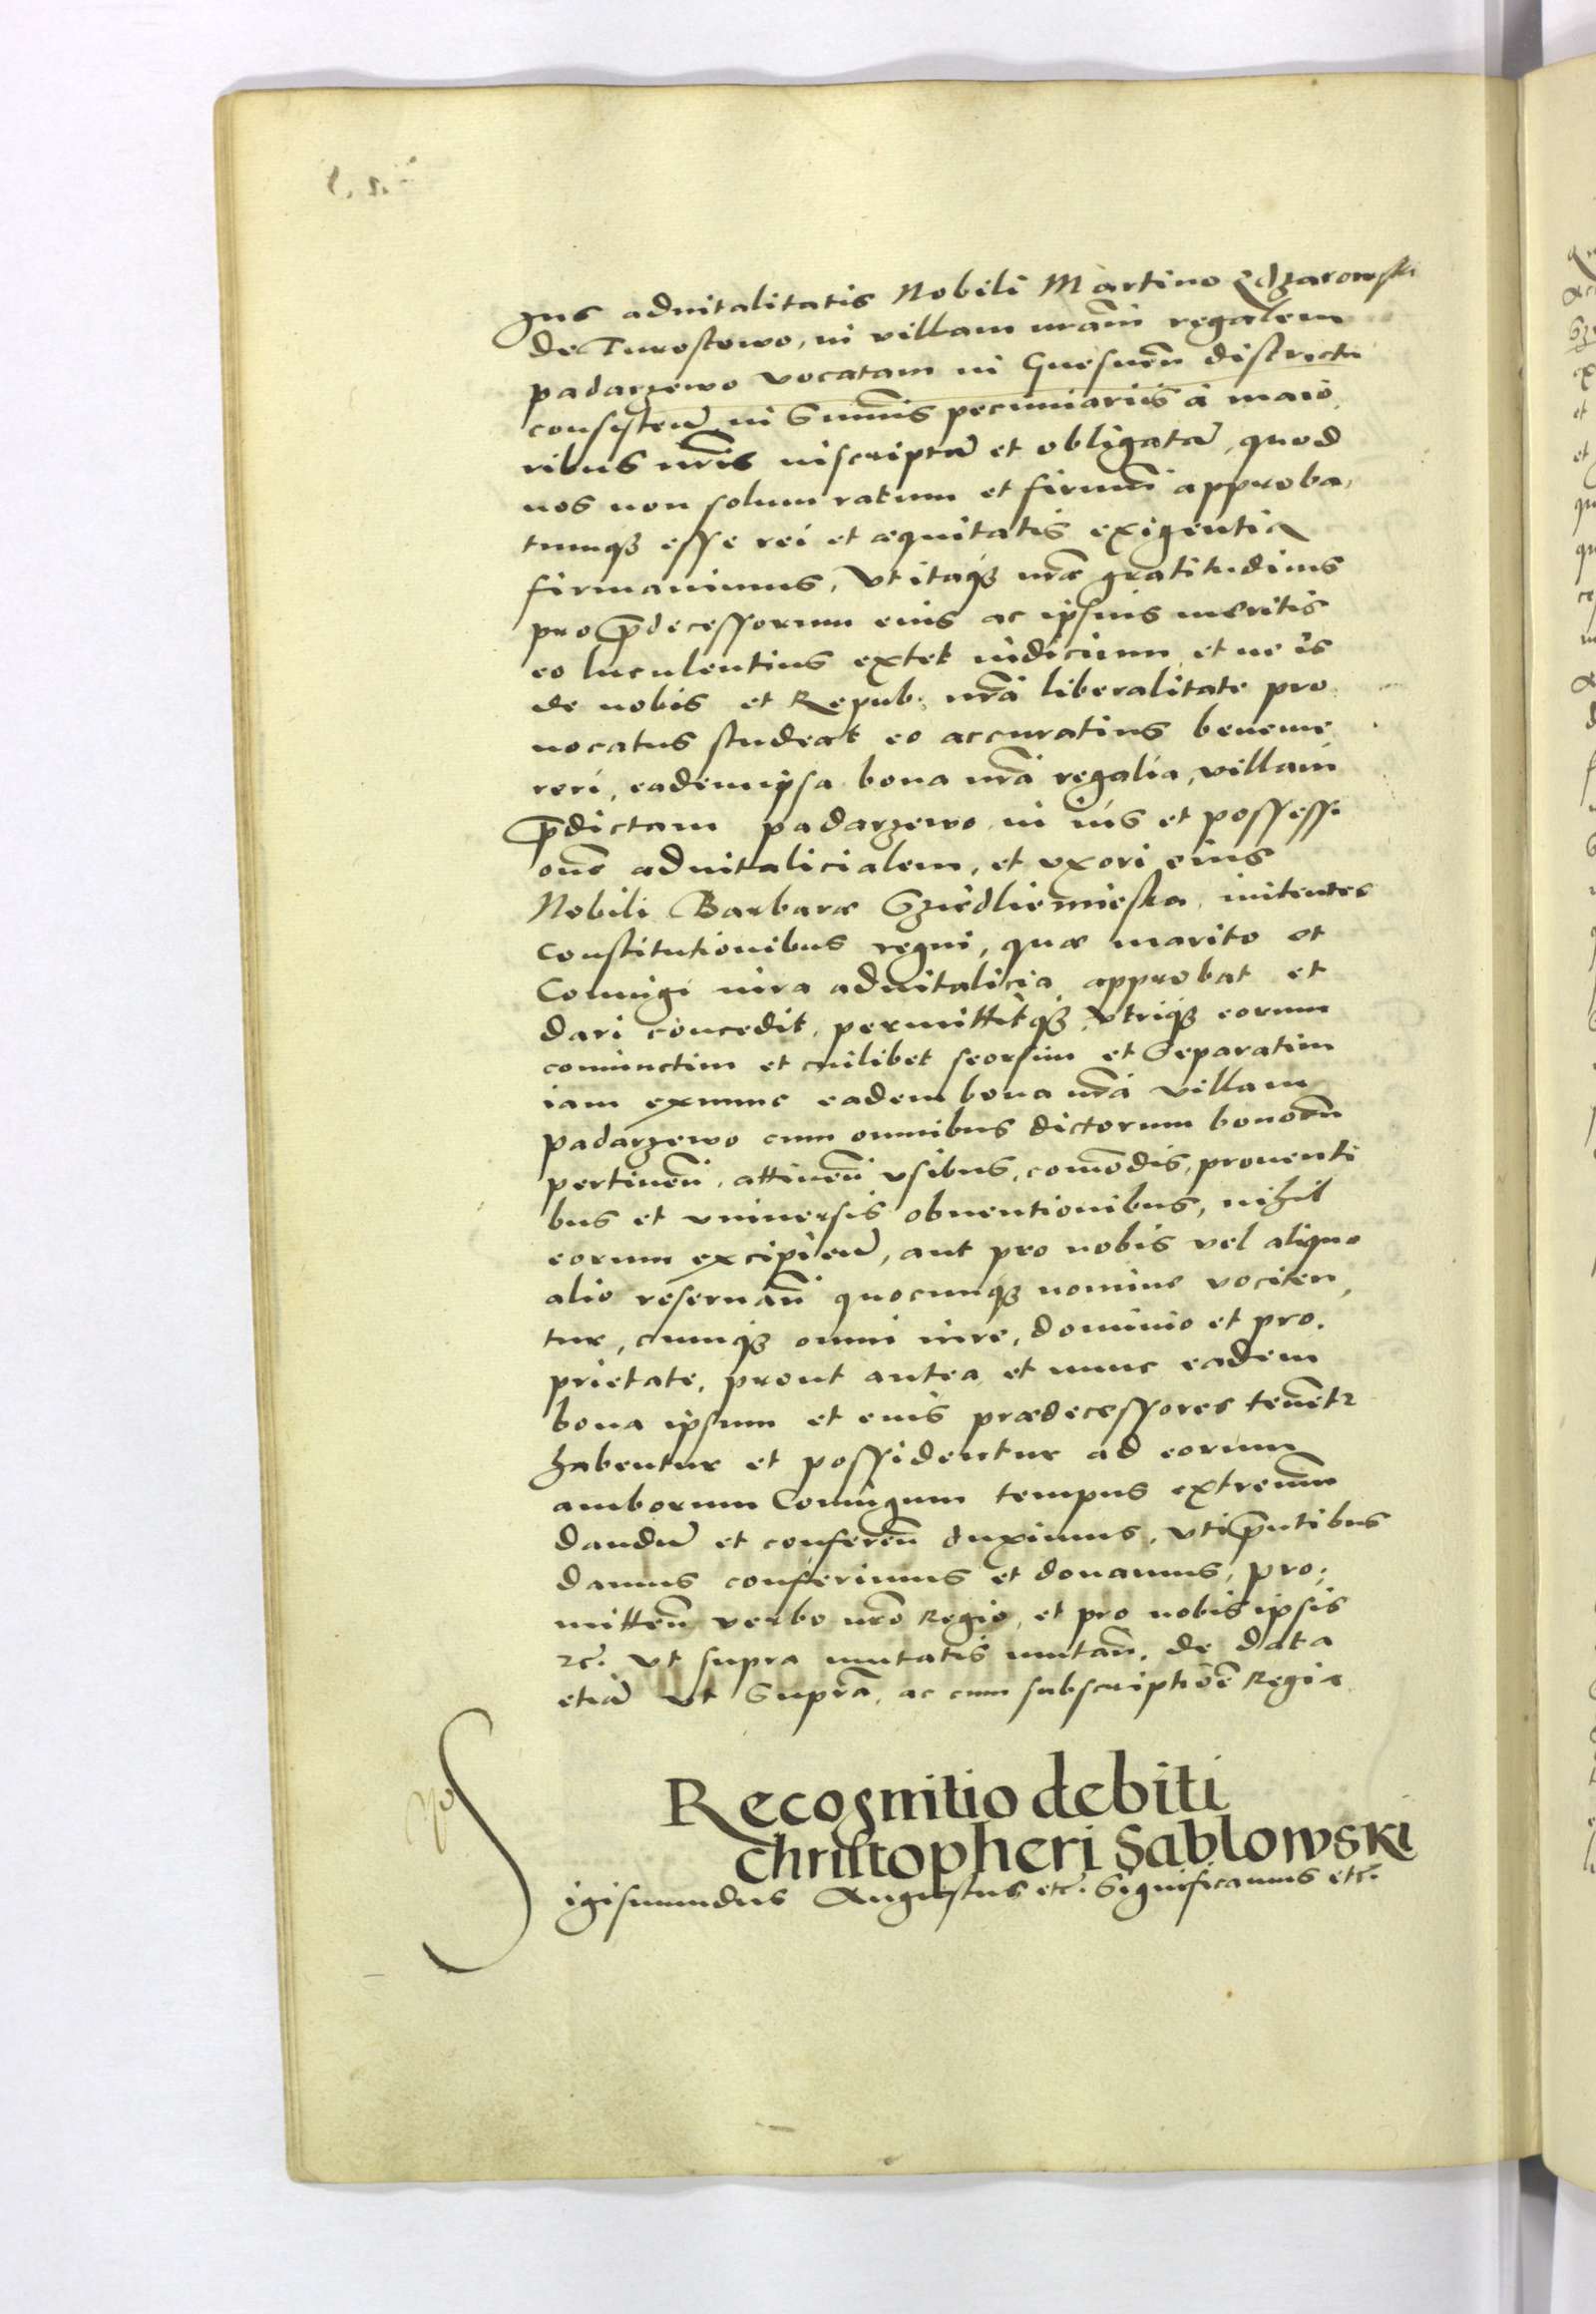 Ius advitalitatis Nobili Martino Zdzarowski
de Turostowo, in villam nrãm regalem
padarzewo vocatam in Gnesneñ districtu
consisteñ, in Sum̃is pecuniariis à maio,
ribus nris̃ inscriptã et obligatã, quod
nos non solum ratum et firmũ approba,
tumqȝ esse rei et æquitatis exigentia
firmavimus, Vt itaqȝ nræ̃ gratitudinis
pro p̃decessorum eius ac ipsius meritis
eo luculentius extet indicium, et ne is
de nobis et Repub: nrã liberalitate pro
uocatus studeat eo accuratius beneme
reri, eademipsa bona nrã regalia, villam
p̃dictam padarzewo in ius et possessi
onẽ advitalicialem, et vxori eius
Nobili Barbaræ Sziedliemieska, initentes
Constitutionibus regni, quæ marito et
Coniugi iura advitalicia approbat et
dari concedit, permittitqȝ, vtriqȝ eorum
coniunctim et cuilibet seorsim et Separatim
iam exnunc eadem bona nrã villam
padarzewo cum omnibus dictorum bonorũ
pertineñ, attineñ vsibus, com̃odis, prouenti
bus et vniuersis obuentionibus, nihil
eorum excipieñ, aut pro nobis vel aliquo
alio reseruañ quocunqȝ nomine vociten,
tur, cumqȝ omni iure, dominio et pro.
prietate, prout antea et nunc eadem
bona ipsum et eius prædecessores tenẽtr
habentur et possidentur ad eorum
amborum Coniugum tempus extremũ
dandũ et confereñ duximus, vti p̃ntibus
damus conferimus et donamus, pro,
mitteñ verbo nrõ Regio, et pro nobis ipsis
etc̃. vt supra mutatis mutañ. de data
etiã vt Suprã, ac cum subscriptiõe Regia
Recognitio debiti
Christopheri Sablowski
Sigismundus Augustus etc̃. Significamus etc̃.